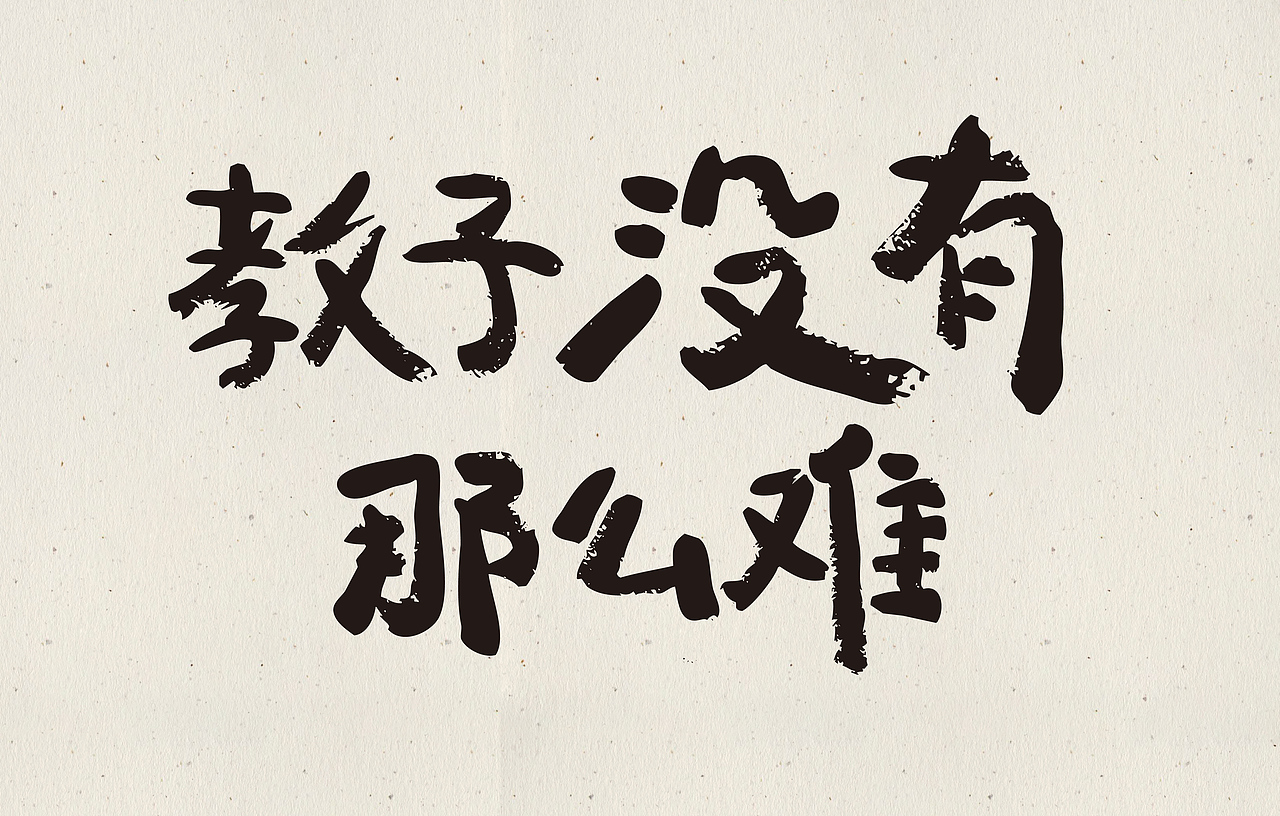 教子没有
那么难